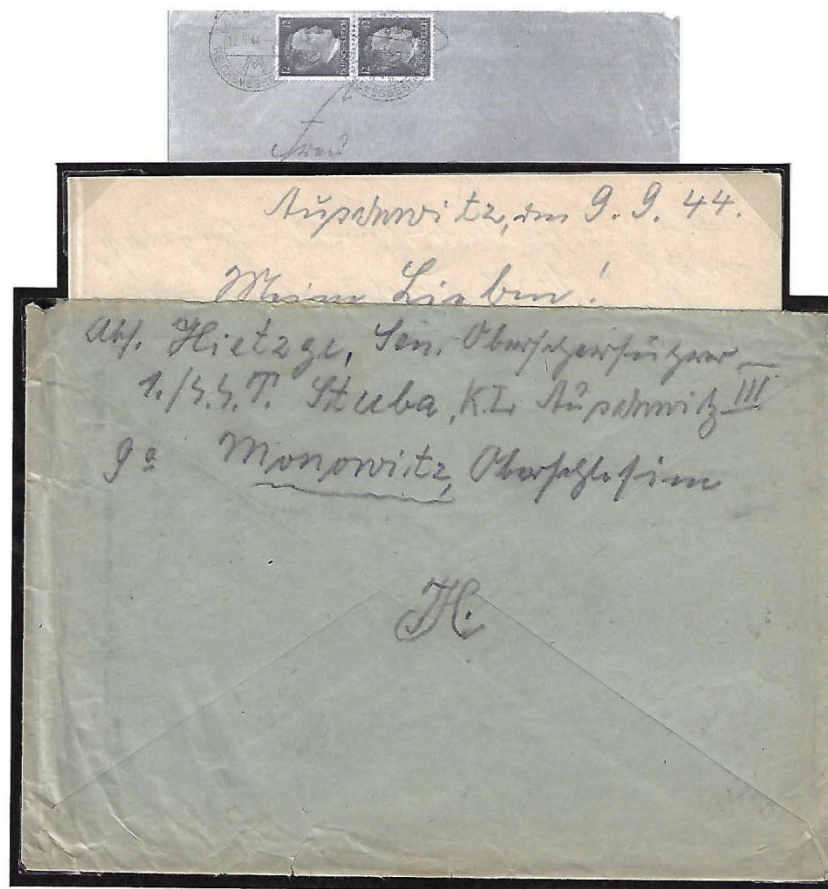 12.9.44
12
12
Frau
Auschwitz, den 9.9.44.
Meine Lieben!
Abs. Hietzge, San. Oberscharführer
1./SS. T. Stuba, K.L. Auschwitz III
Monowitz, Oberschlesien
H.